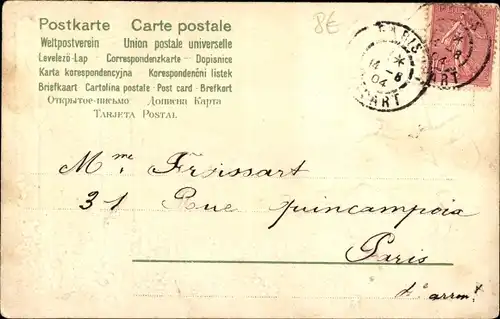 Postkarte Carte postale
Weltpostverein - Union postale universelle
Levelező-Lap - Correspondenzkarte - Dopisnice
Karta korespondencyjna - Korespondenční listek
Briefkaart - Cartolina postale - Post card - Brefkort
Открытое-письмо - Дописна Карта
Tarjeta Postal
8€
PARIS
14 - 8
04
ART
Mme. Froissart
31 Rue quincampoix
Paris